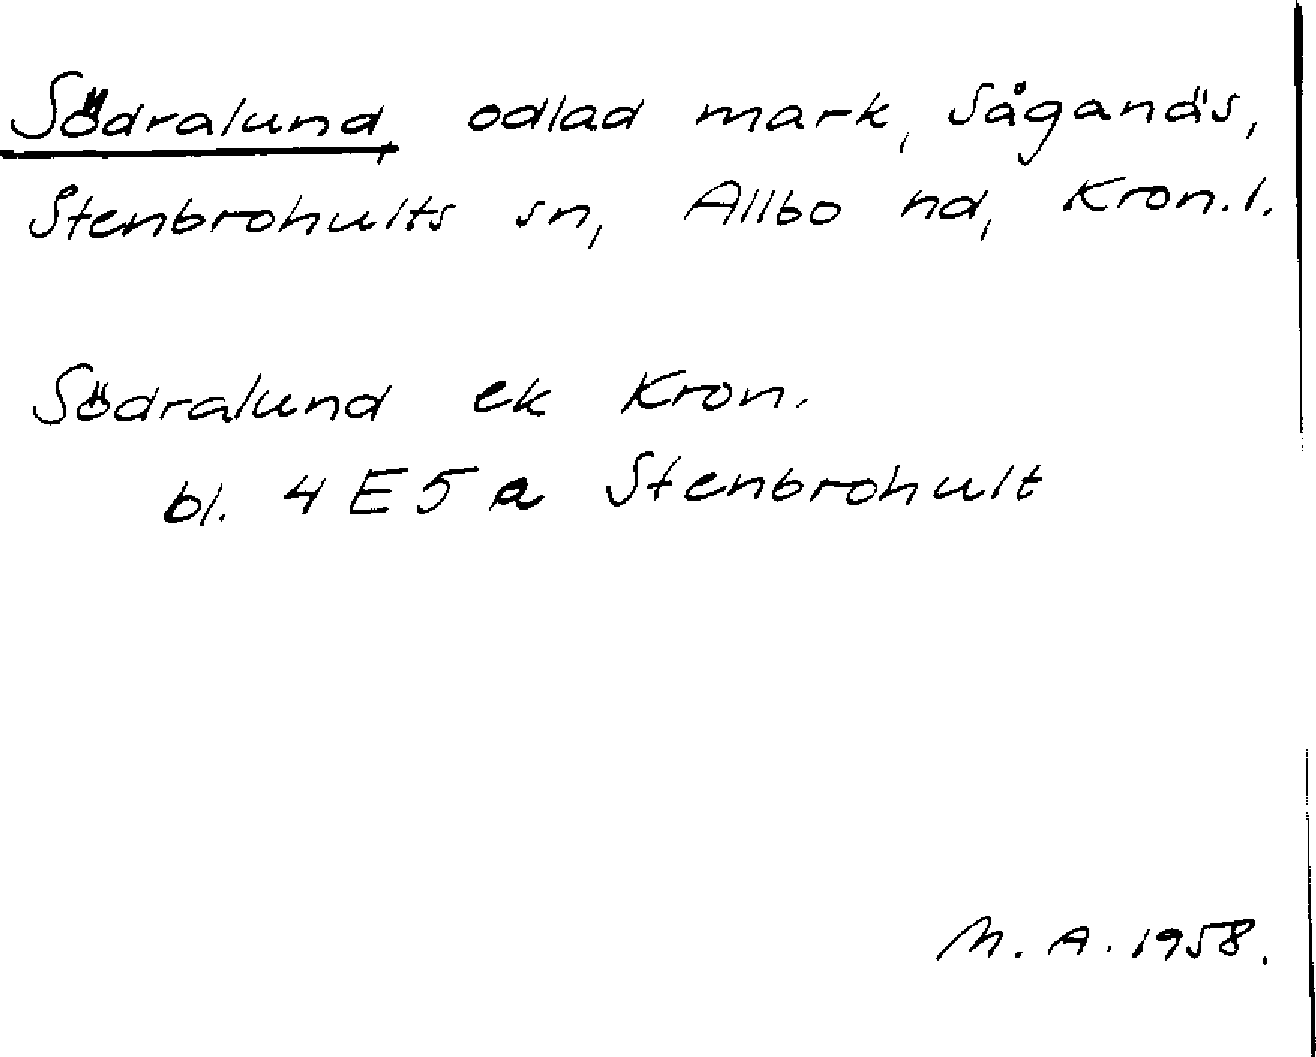 Södralund, odlad mark, Såganäs,
Stenbrohults sn, Allbo hd, Kron. l.
Södralund ek Kron.
bl. 4 E 5 a Stenbrohult
M. A. 1958.